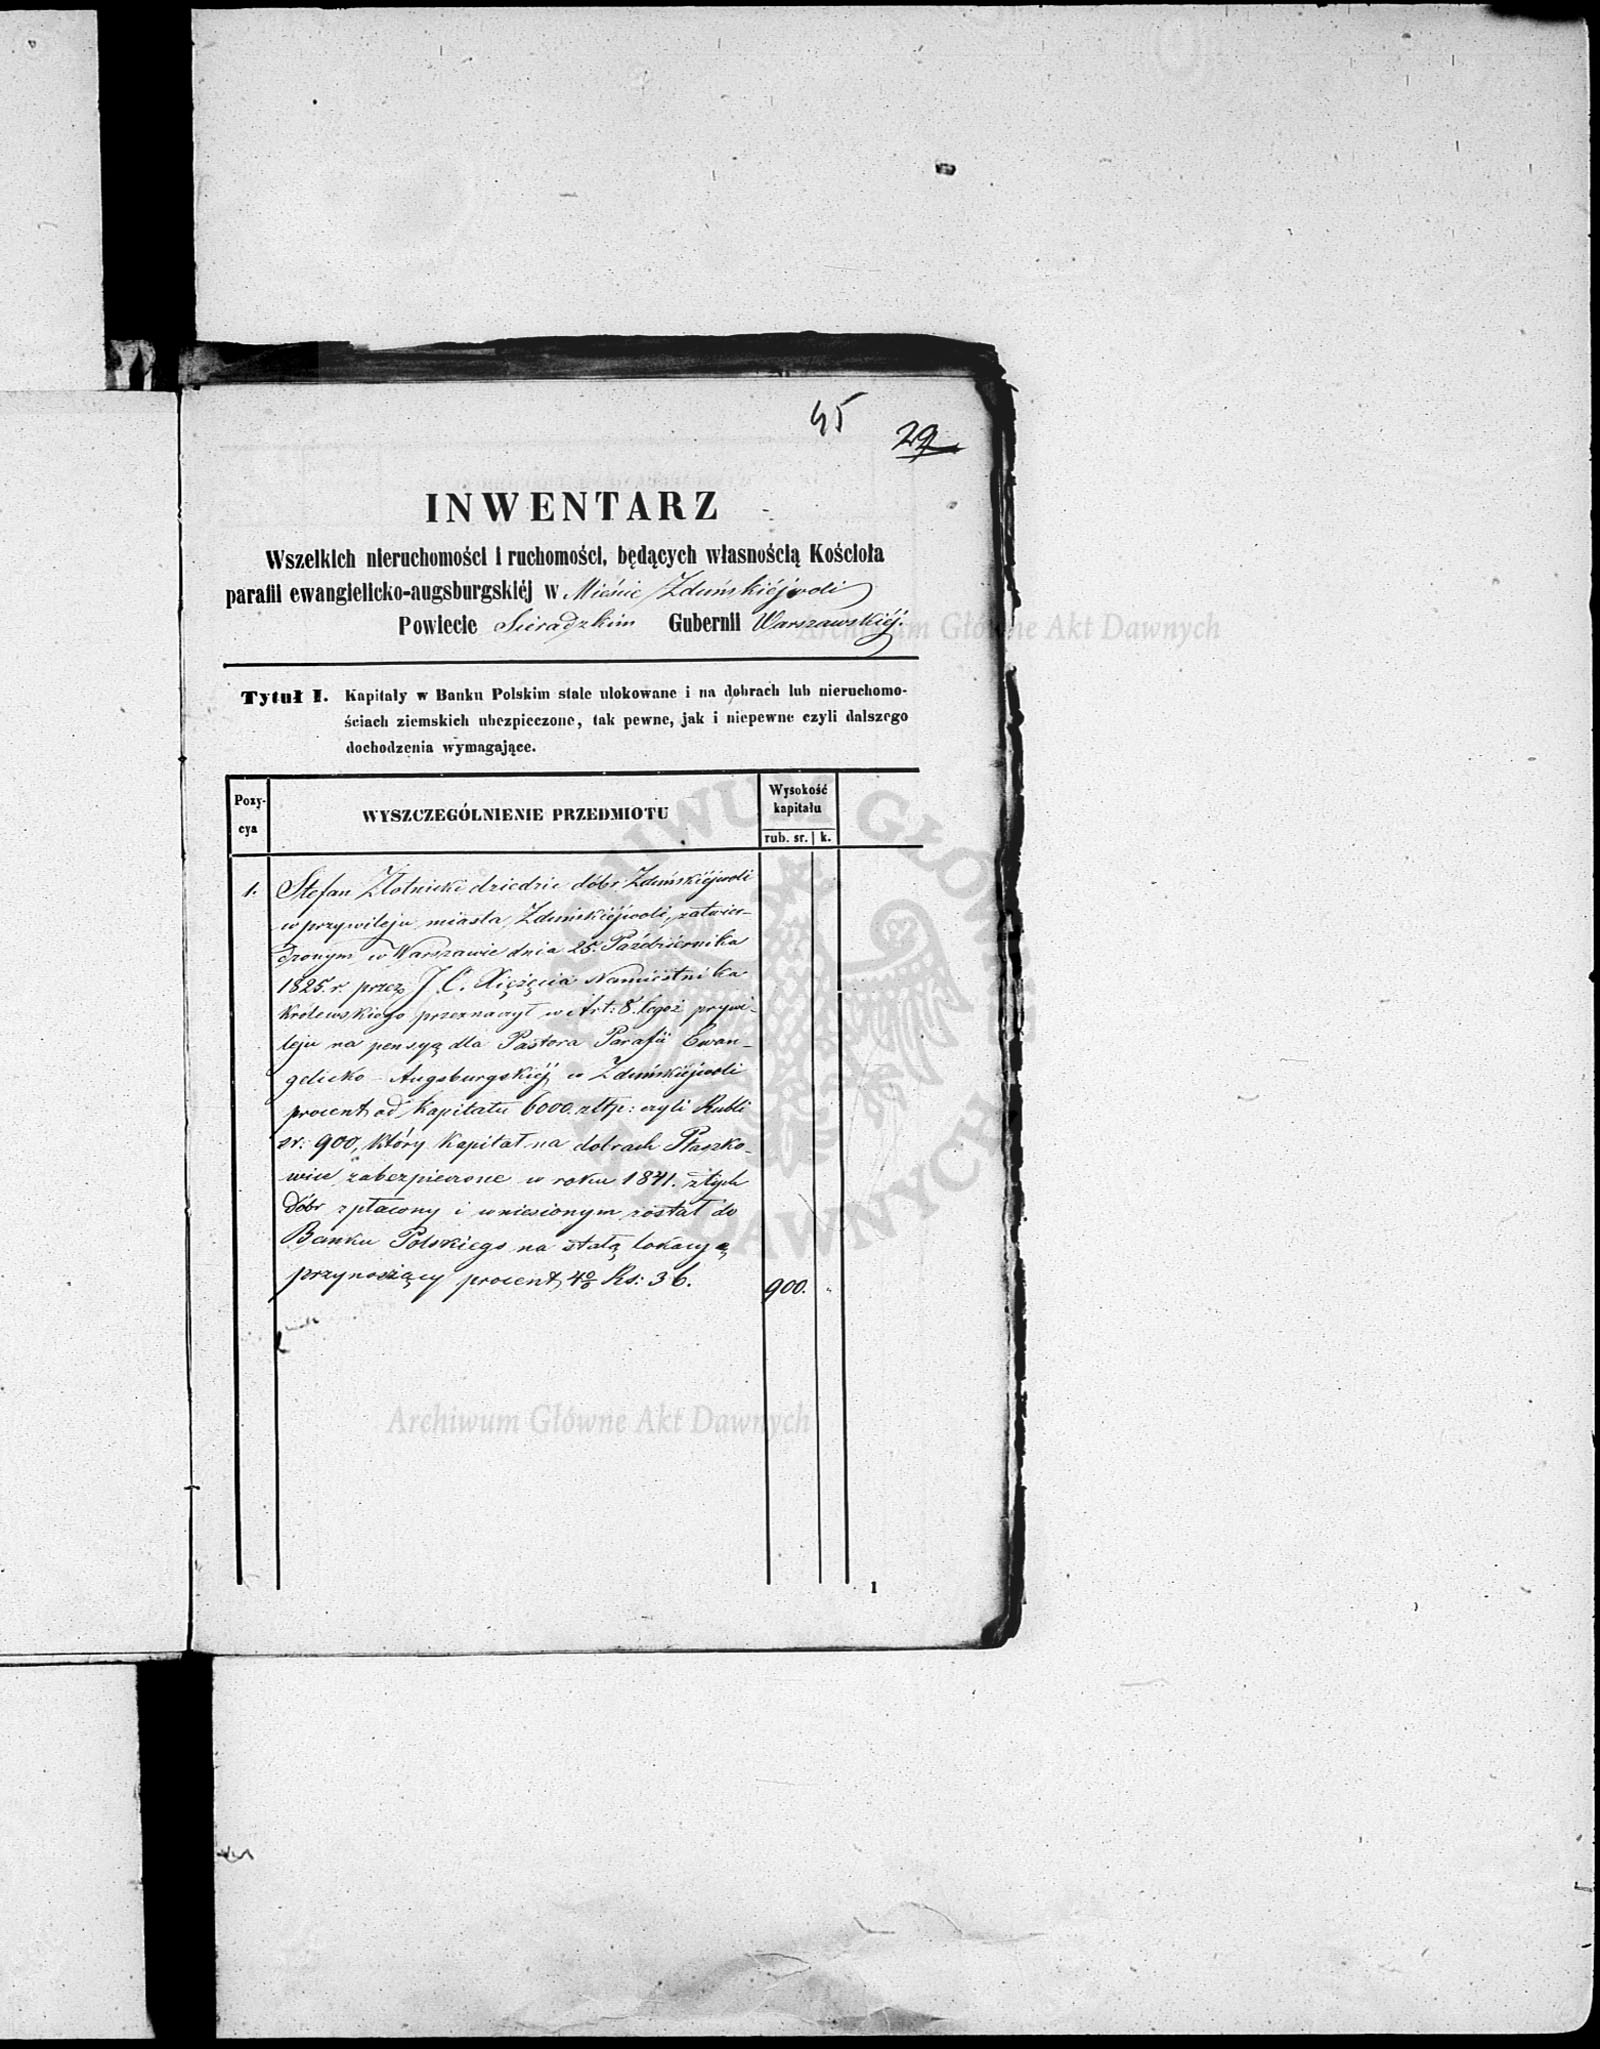 45
29
INWENTARZ
Wszelkich nieruchomości i ruchomości, będących własnością Kościoła
parafii ewangielicko-augsburgskiéj w Mieście Zduńskiéjwoli
Powiecie Sieradzkim Gubernii Warszawskiéj.
Tytuł I. Kapitały w Banku Polskim stale ulokowane i na dobrach lub nieruchomo-
ściach ziemskich ubezpieczone, tak pewne, jak i niepewne czyli dalszego
dochodzenia wymagające.
Pozy-
cya
WYSZCZEGÓLNIENIE PRZEDMIOTU
Wysokość
kapitału
rub. sr. k.
1. Stefan Złotnicki dziedzic dóbr Zduńskiéjwoli
w przywileju miasta Zduńskiéjwoli, zatwier-
dzonym w Warszawie dnia 25. Paździérnika
1825. r. przez J. C. Xiężęcia Namiestnika
Królewskiego przeznaczył w Art: 8. tegoż przywi-
leju na pensyą dla Pastora Parafii Ewan-
gelicko-Augsburgskiéj w Zduńskiéjwoli
procent od Kapitału 6000. złtp: czyli Rubli
sr: 900, który Kapitał na dobrach Ptaszko-
wice zabezpieczone w roku 1841. z tych
dóbr spłacony i wniesionym został do
Banku Polskiego na stałą lokacyą
przynoszący procent 4% Rs: 36. 900. "
1
Archiwum Główne Akt Dawnych
Archiwum Główne Akt Dawnych
ARCHIWUM GŁÓWNE AKT DAWNYCH